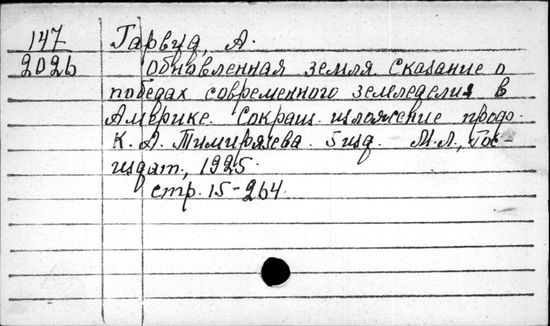 147 Гарвуд, А.
2026 Обновленная земля. Сказание о
победах современного земледелия в
Америке. Сокращ. изложение проф.
К. А. Тимирязева. 5 изд. М.Л., Гос-
издат, 1925.
стр. 15-264.